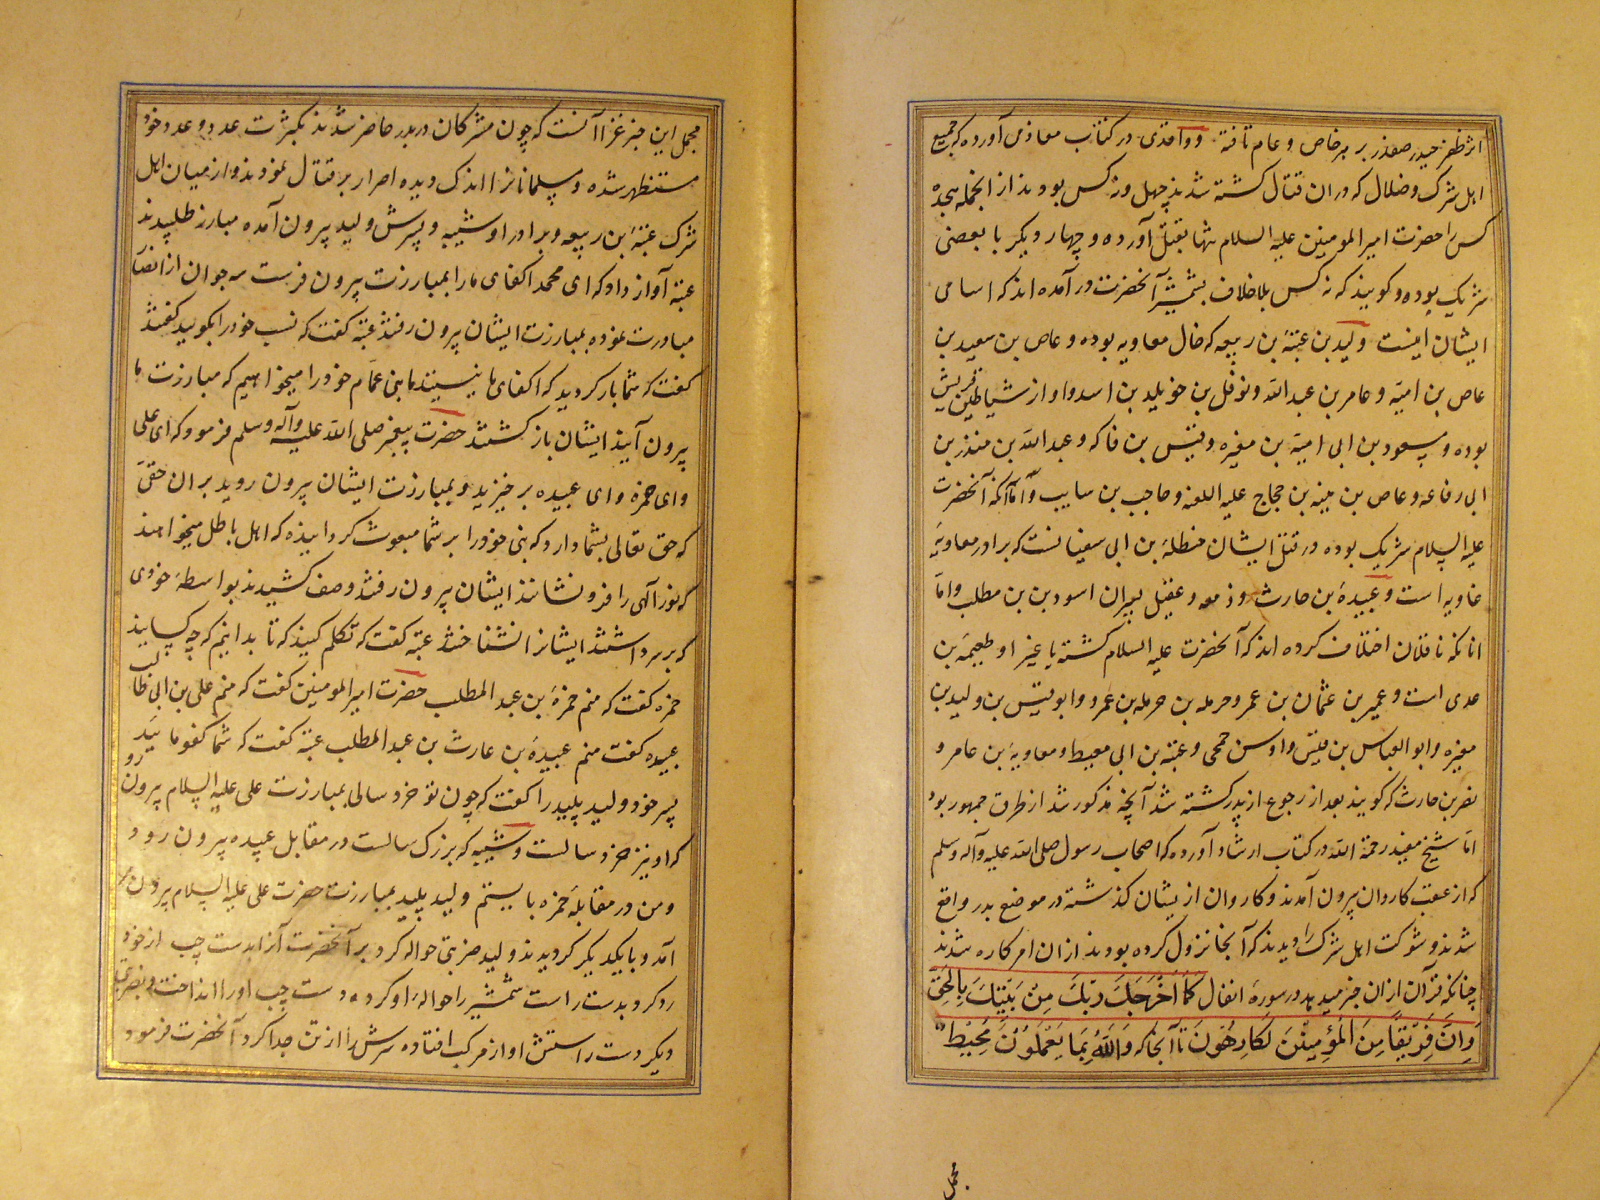 اثر ظفر حیدر صفدر بر هر خاص و عام تافته و واقدی در کتاب مغازی آورده که جمیع
اهل شرک و ضلال که در ان قتال کشته شدند چهل و نه کس بودند از انجمله هجده
کس را حضرت امیر المومنین علیه السلام تنها بقتل آورده و چهار دیکر با بعضی
شریک بوده و کویند که نه کس بلا خلاف بشمشیر آنحضرت در آمده اند که اسامی
ایشان اینست ولید بن عتبة بن ربیعه که خال معاویه بوده و عاص بن سعید بن
عاص بن امیة و عامر بن عبد الله و نوفل بن خویلد بن اسد و او از شیاطین قریش
بوده و مسعود بن ابی امیة بن مغیره و قیس بن فاکه و عبد الله بن منذر بن
ابی رفاعه و عاص بن منبه بن حجاج علیه اللعنه و حاجب بن سایب و اما آنکه آنحضرت
علیه السلام شریک بوده در قتل ایشان حنظلة بن ابی سفیانست که برادر معاویهٔ
غاویه است و عبیدة بن حارث و زمعه و عقیل پسران اسود بن بن مطلب و اما
انانکه ناقلان اختلاف کرده اند که آنحضرت علیه السلام کشته یا غیر او طعیمة بن
عدی است و عمیر بن عثمان بن عمرو و حرمله بن عمرو و ابو قیس بن ولید بن
مغیره و ابو العاص بن قیس و اوس جمحی و عتبة بن ابی معیط و معاویة بن عامر و
نضر بن حارث که کویند بعد از رجوع از بدر کشته شد آنچه مذکور شد از طرق جمهور بود
اما شیخ مفید رحمة الله در کتاب ارشاد آورده که اصحاب رسول صلی الله علیه و آله وسلم
که از عقب کاروان پیرون آمدند و کاروان از یشان کذشته در موضع بدر واقع
شدند و شوکت اهل شرک را دیدند که آنجا نزول کرده بودند از ان امر کاره شدند
چنانکه قرآن از ان خبر میدهد در سورهٔ انفال كَمَا أَخْرَجَكَ رَبُّكَ مِنْ بَيْتِكَ بِالْحَقِّ
وَإِنَّ فَرِيقًا مِنَ الْمُؤْمِنِينَ لَكَارِهُونَ تا آنجا که وَاللهُ بِمَا يَعْمَلُونَ مُحِيطٌ
مجمل
مجمل این خبر غزا آنست که چون مشرکان در بدر حاضر شدند بکثرت عدد و عدد خود
مستظهر شده و مسلمانانرا اندک دیده اصرار بر قتال نمودند و از میان اهل
شرک عتبة بن ربیعه و برادر او شیبه و پسرش ولید پیرون آمده مبارز طلبیدند
عتبه آواز داد که ای محمد اکفای ما را بمبارزت پیرون فرست سه جوان از انصار
مبادرت نموده بمبارزت ایشان پیرون رفتند عتبه کفت که نسب خود را بکویید کفتند
کفت که شما باز کردید که اکفای ما نیستید ما بنی عمام خود را میخواهیم که مبارزت ما
پیرون آیند ایشان باز کشتند حضرت پیغمبر صلی الله علیه و آله وسلم فرمود که ای علی
و ای حمزه و ای عبیده بر خیزید و بمبارزت ایشان پیرون روید بر ان حقی
که حق تعالی بشما دارد که نبی خود را بر شما مبعوث کردانیده که اهل باطل میخواهند
که نور آلهی را فرو نشانند ایشان پیرون رفتند و صف کشیدند بواسطهٔ خودی
که بر سر داشتند ایشانرا نشناختند عتبه کفت که تکلم کنید که تا بدانیم که چه کسانید
حمزه کفت که منم حمزة بن عبد المطلب حضرت امیر المومنین کفت که منم علی بن ابی طالب
عبیده کفت منم عبیدة بن حارث بن عبد المطلب عتبه کفت که شما کفو مایید رو
پسر خود ولید پلید را کفت که چون تو خرد سالی بمبارزت علی علیه السلام پیرون
که او نیز خرد سالست و شیبه که بزرک سالست در مقابل عبیده پیرون رود
و من در مقابلهٔ حمزه بایستم ولید پلید بمبارزت حضرت علی علیه السلام پیرون
آمد و با یکدیکر کردیدند ولید ضربتی حواله کرد بر آنحضرت آنرا بدست چپ از خود
رد کرد و بدست راست شمشیر را حوالهٔ او کرده دست چپ او را انداخت و بضربتی
دیکر دست راستش او از مرکب افتاده سرش را از تن جدا کرد آنحضرت فرمود